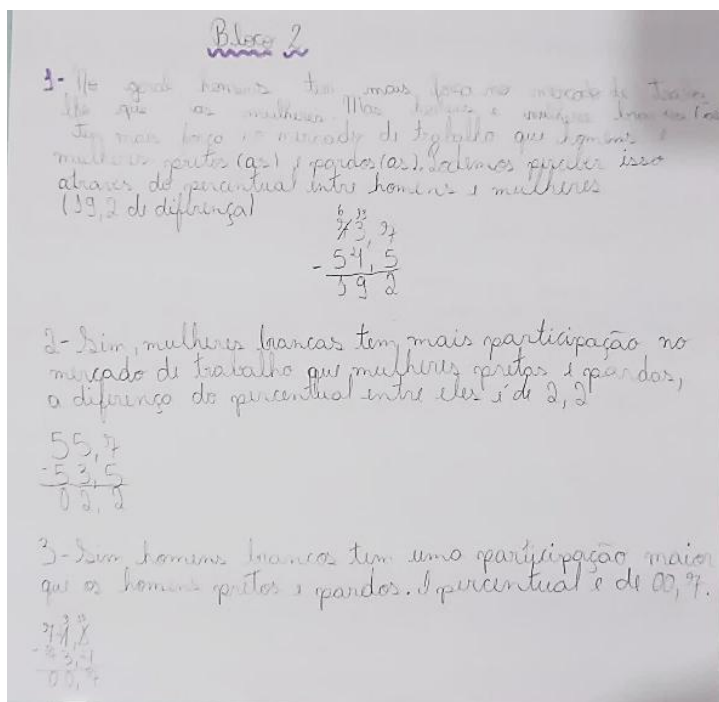 Bloco 2
1- No geral homens tem mais força no mercado de traba
lho que as mulheres. Mas homens e mulheres brancos (as)
Tem mais força no mercado de trabalho que homens e
mulheres pretos (as) e pardos (as). Podemos perceber isso
atraves do percentual entre homens e mulheres
(19,2 de diferença)
6 13
73,7
- 54,5
19 2
2- Sim, mulheres brancas tem mais participação no
mercado de trabalho que mulheres pretas e pardas,
a diferença do percentual entre eles é de 2,2
55,7
-53,5
02,2
3- Sim homens brancos tem uma participação maior
que os homens pretos e pardos. O percentual é de 00,7.
00,7